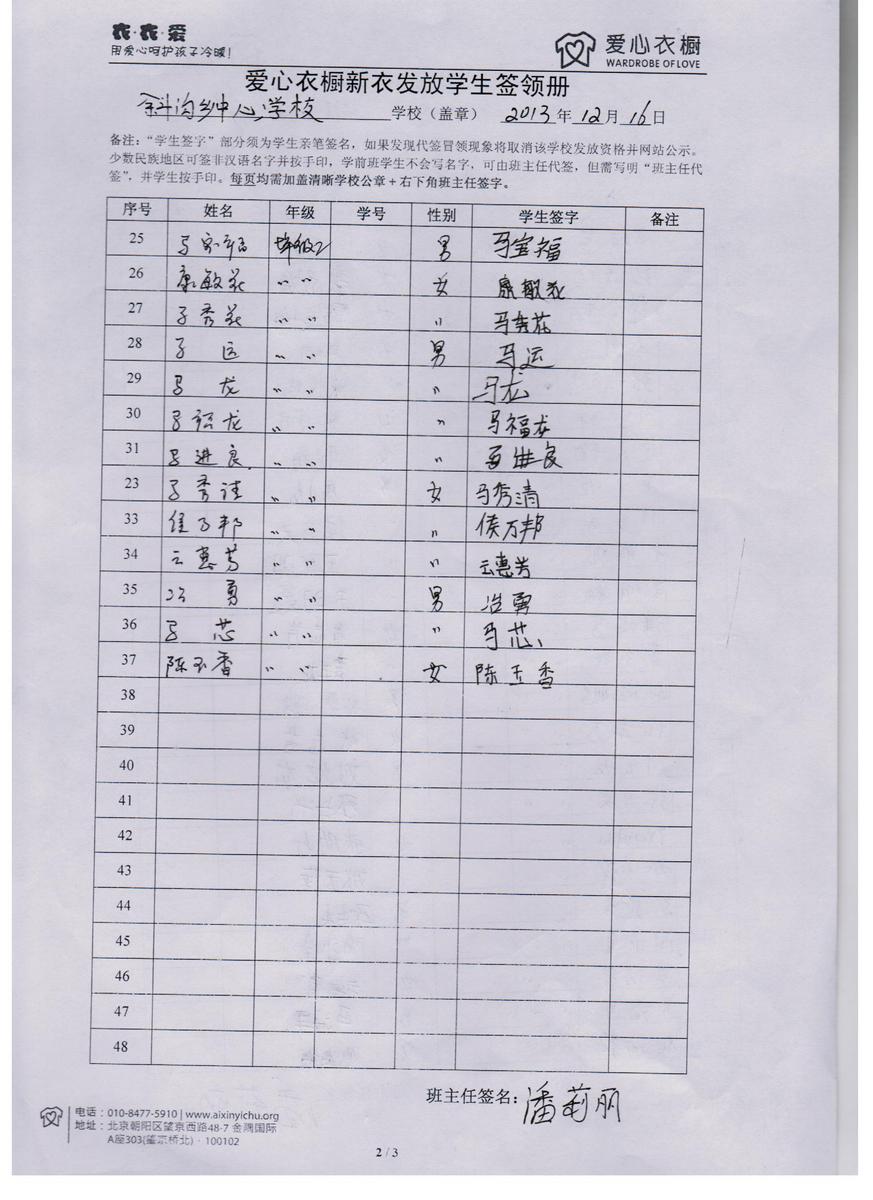 衣·衣·爱
用爱心呵护孩子冷暖!
爱心衣橱
WARDROBE OF LOVE
爱心衣橱新衣发放学生签领册
斜沟乡中心学校 学校（盖章） 2013年12月16日
备注：“学生签字”部分须为学生亲笔签名，如果发现代签冒领现象将取消该学校发放资格并网站公示。
少数民族地区可签非汉语名字并按手印，学前班学生不会写名字，可由班主任代签，但需写明“班主任代
签”，并学生按手印。每页均需加盖清晰学校公章+右下角班主任签字。
序号 姓名 年级 学号 性别 学生签字 备注
25 马宝福 男 马宝福
26 康敏花 〃 〃 女 康敏花
27 马秀花 〃 〃 〃 马秀花
28 马 运 〃 〃 男 马运
29 马 龙 〃 〃 〃 马龙
30 马福龙 〃 〃 〃 马福龙
31 马进良 〃 〃 〃 马进良
23 马秀清 〃 〃 女 马秀清
33 侯万邦 〃 〃 〃 侯万邦
34 云惠芳 〃 〃 〃 云惠芳
35 勇 〃 〃 男 浩勇
36 马 芯 〃 〃 〃 马芯
37 陈玉香 〃 〃 女 陈玉香
38
39
40
41
42
43
44
45
46
47
48
班主任签名：潘莉丽
电话：010-8477-5910 | www.aixinyichu.org
地址：北京朝阳区望京西路48-7 金隅国际
A座303(望京桥北)·100102
2 / 3